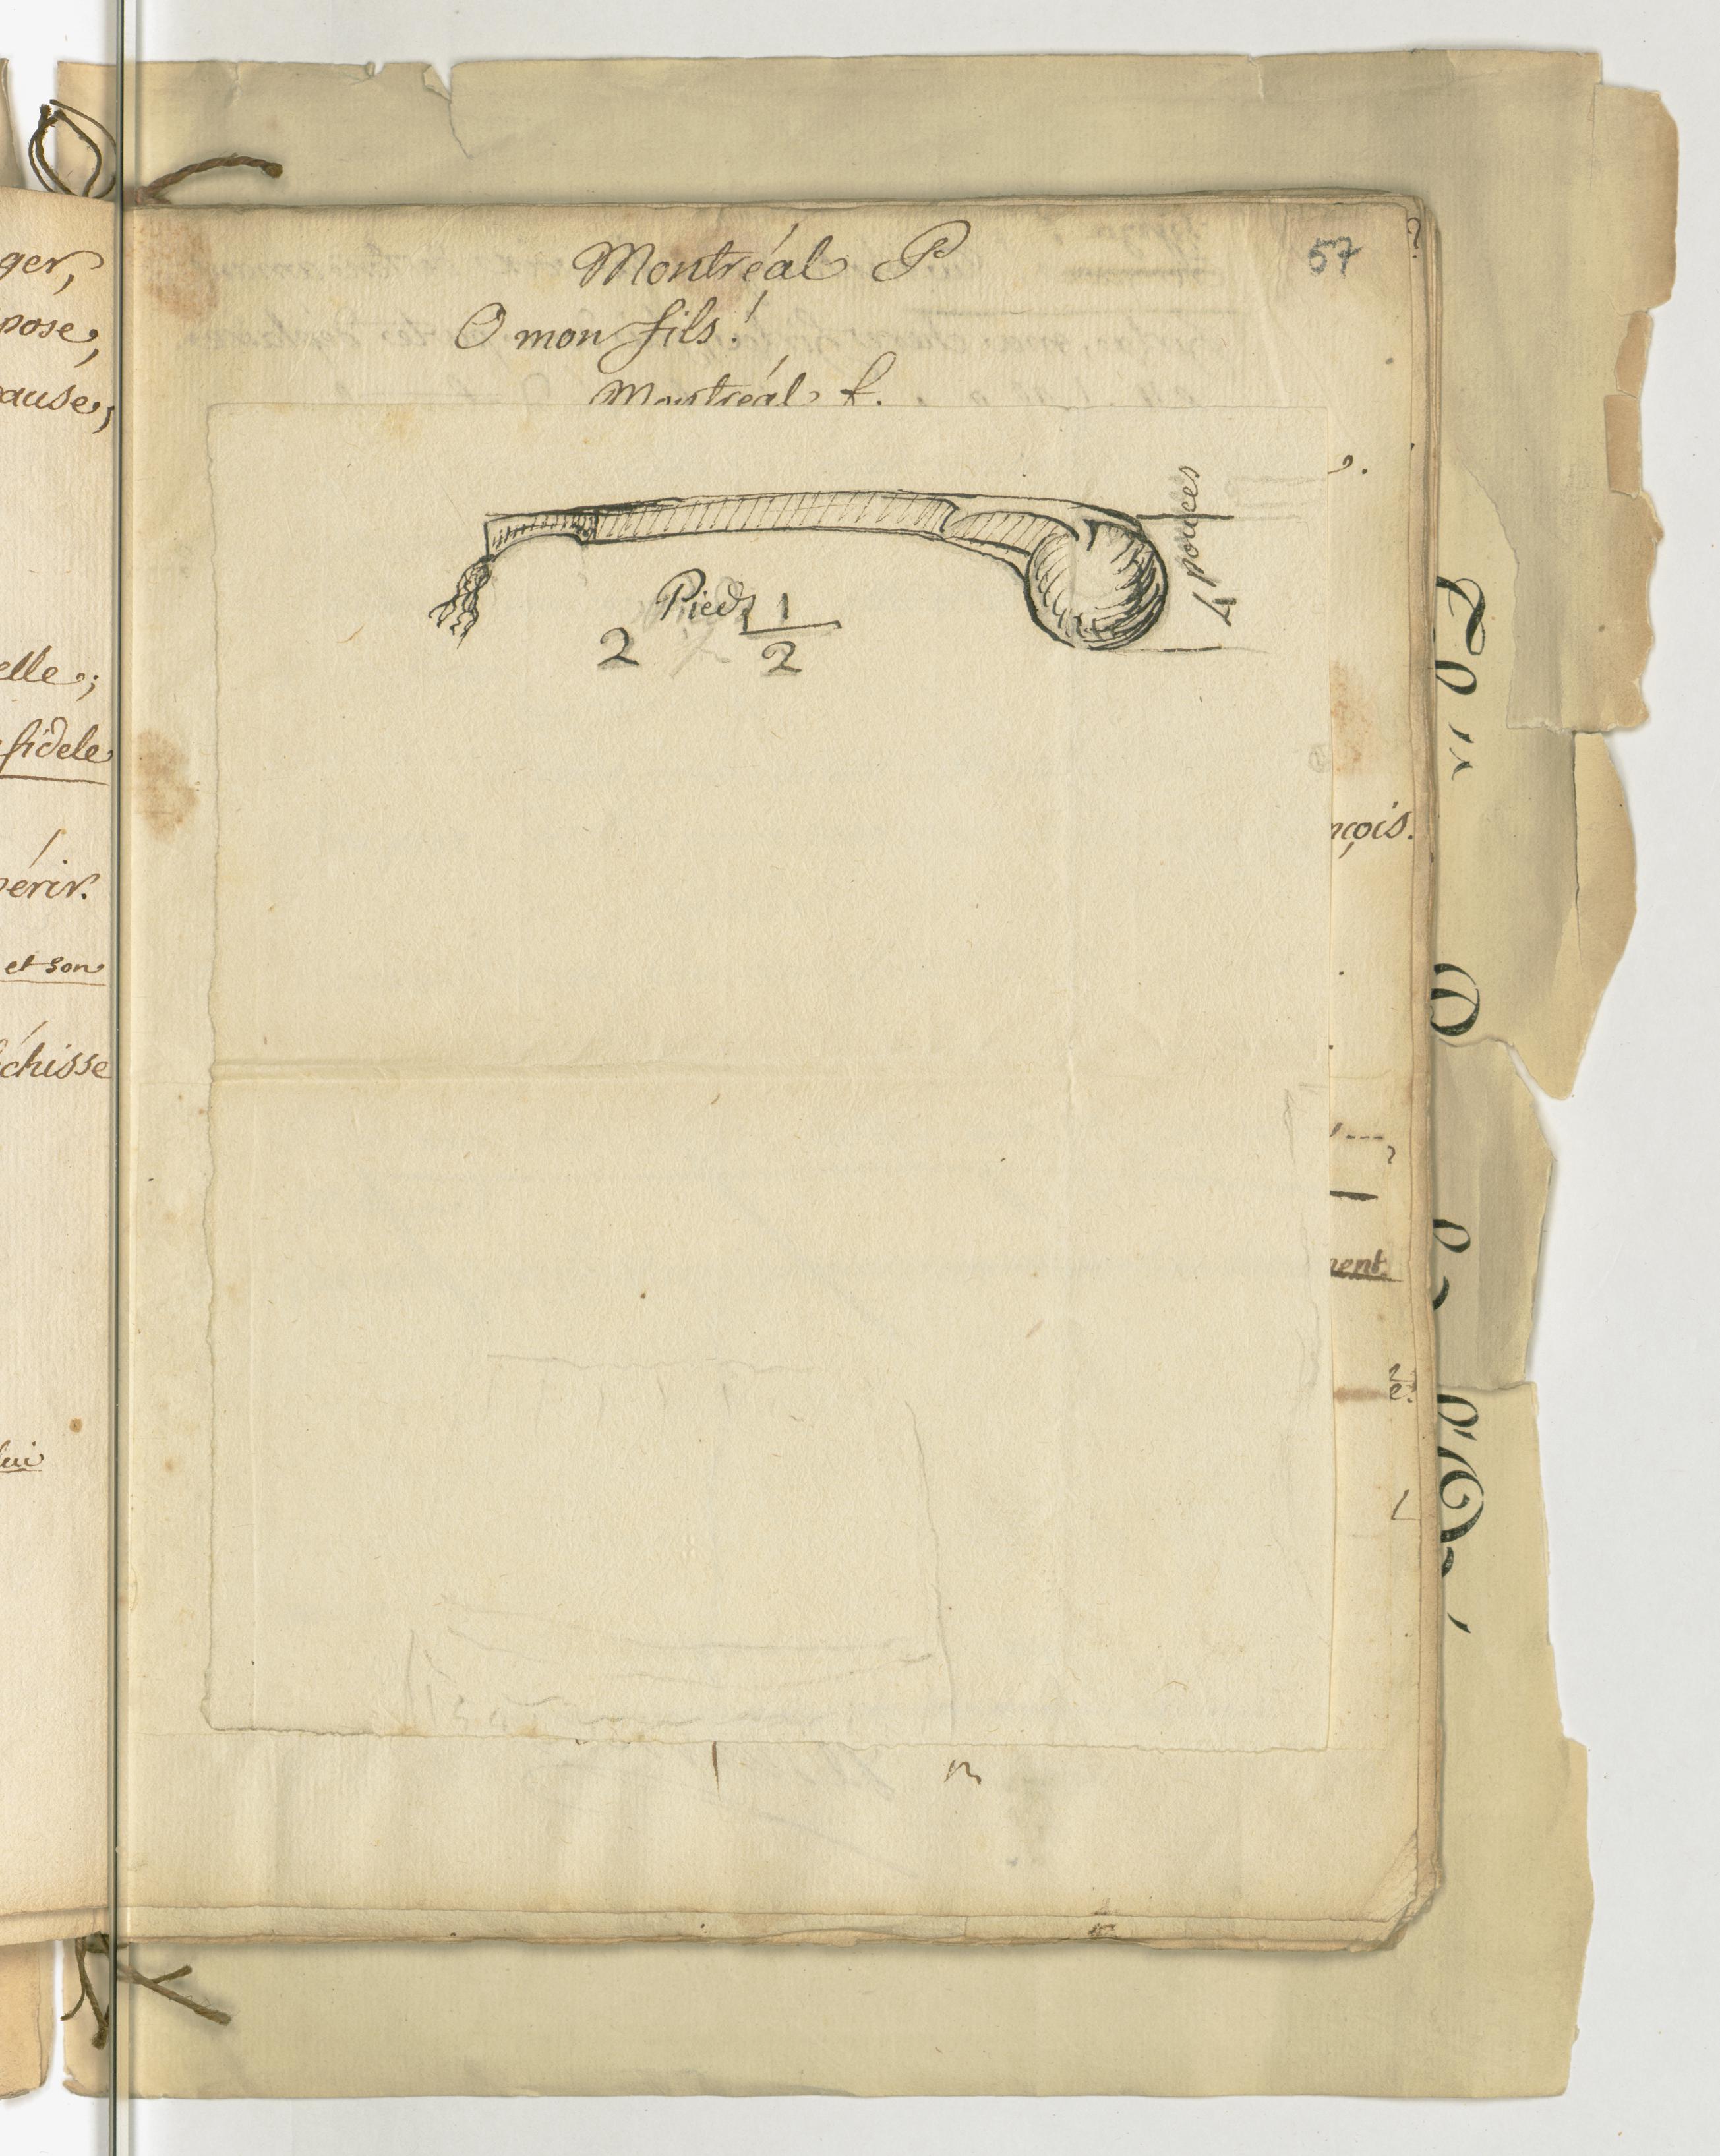 ger,
pose,
ause,
elle;
fidele
périr.
et son
échisse
lui
57
Montréal P
O mon fils!
Montréal f.
4 pouces
2 Pieds 1/2
nçois.
ment.